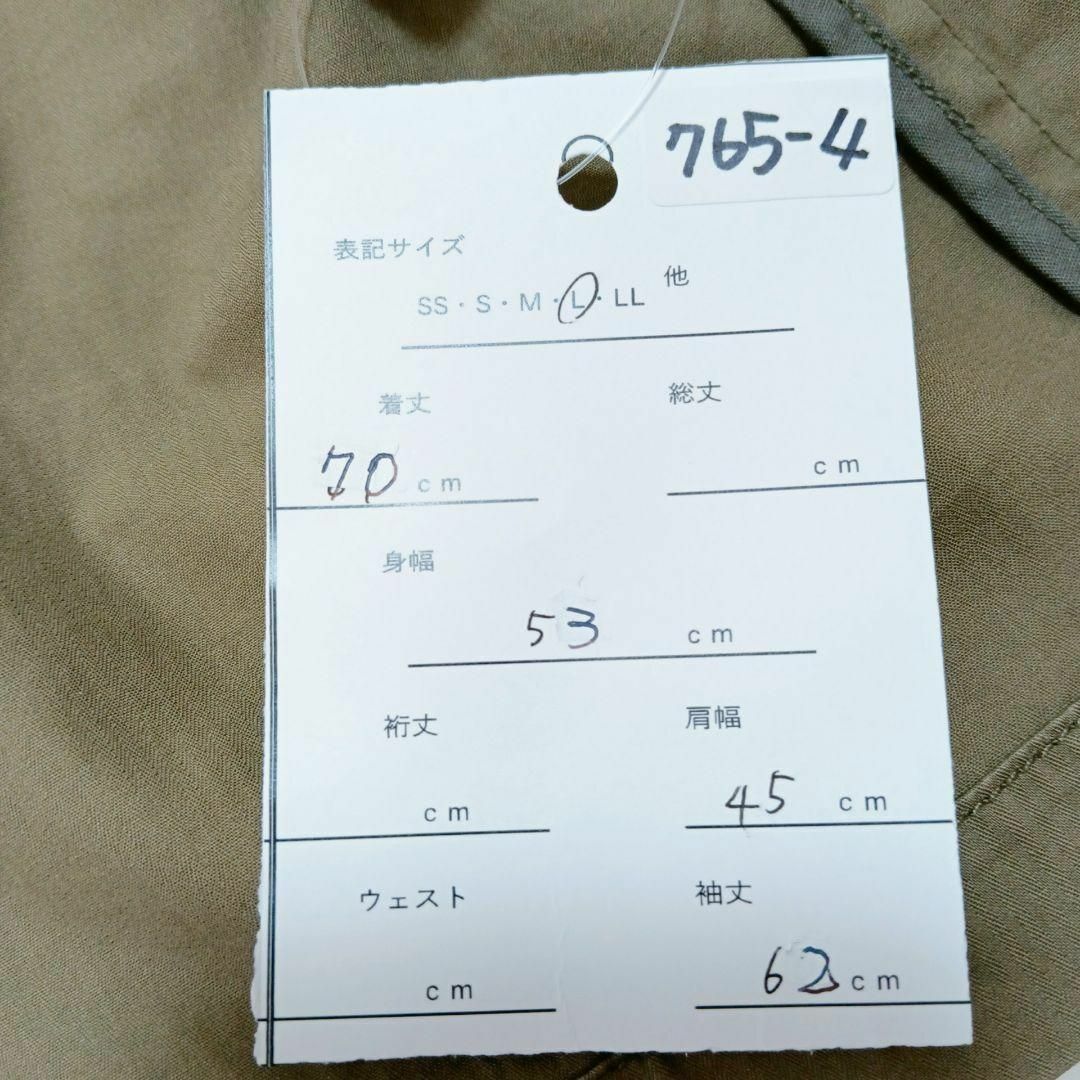 765-4
表記サイズ
SS・S・M・L・LL 他
着丈 総丈
70 cm cm
身幅
53 cm
裄丈 肩幅
cm 45 cm
ウェスト 袖丈
cm 62 cm